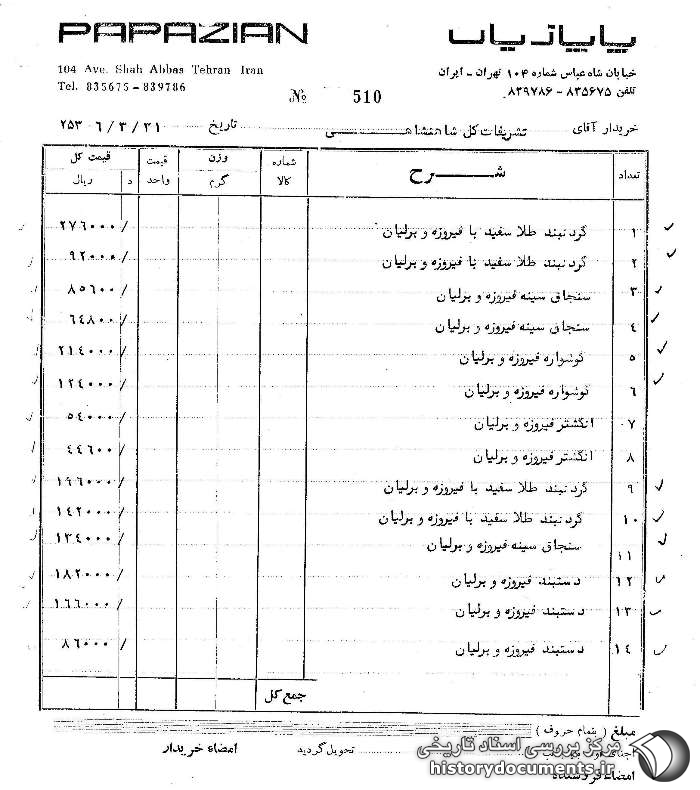 PAPAZIAN پاپازیان
104 Ave. Shah Abbas Tehran Iran خیابان شاه عباس شماره ۱۰۴ تهران - ایران
Tel. 835675 - 839786 تلفن ۸۳۵۶۷۵ - ۸۳۹۷۸۶
№ 510
خریدار آقای تشریفات کل شاهنشاهی تاریخ ۲۵۳۶/۳/۲۱
تعداد شرح شماره کالا وزن گرم قیمت واحد قیمت کل ریال د
۱ گردنبند طلا سفید با فیروزه و برلیان ۲۷۶۰۰۰/
۲ گردنبند طلا سفید با فیروزه و برلیان ۹۲۰۰۰/
۳ سنجاق سینه فیروزه و برلیان ۸۵۶۰۰/
۴ سنجاق سینه فیروزه و برلیان ۶۴۸۰۰/
۵ گوشواره فیروزه و برلیان ۲۱۴۰۰۰/
۶ گوشواره فیروزه و برلیان ۱۲۴۰۰۰/
۷ انگشتر فیروزه و برلیان ۵۴۰۰۰/
۸ انگشتر فیروزه و برلیان ۴۴۶۰۰/
۹ گردنبند طلا سفید با فیروزه و برلیان ۱۹۶۰۰۰/
۱۰ گردنبند طلا سفید با فیروزه و برلیان ۱۴۲۰۰۰/
۱۱ سنجاق سینه فیروزه و برلیان ۱۳۴۰۰۰/
۱۲ دستبند فیروزه و برلیان ۱۸۲۰۰۰/
۱۳ دستبند فیروزه و برلیان ۱۶۶۰۰۰/
۱۴ دستبند فیروزه و برلیان ۸۶۰۰۰/
جمع کل
مبلغ (بتمام حروف)
تحویل گردید امضاء خریدار
امضاء فروشنده
مرکز بررسی اسناد تاریخی
historydocuments.ir